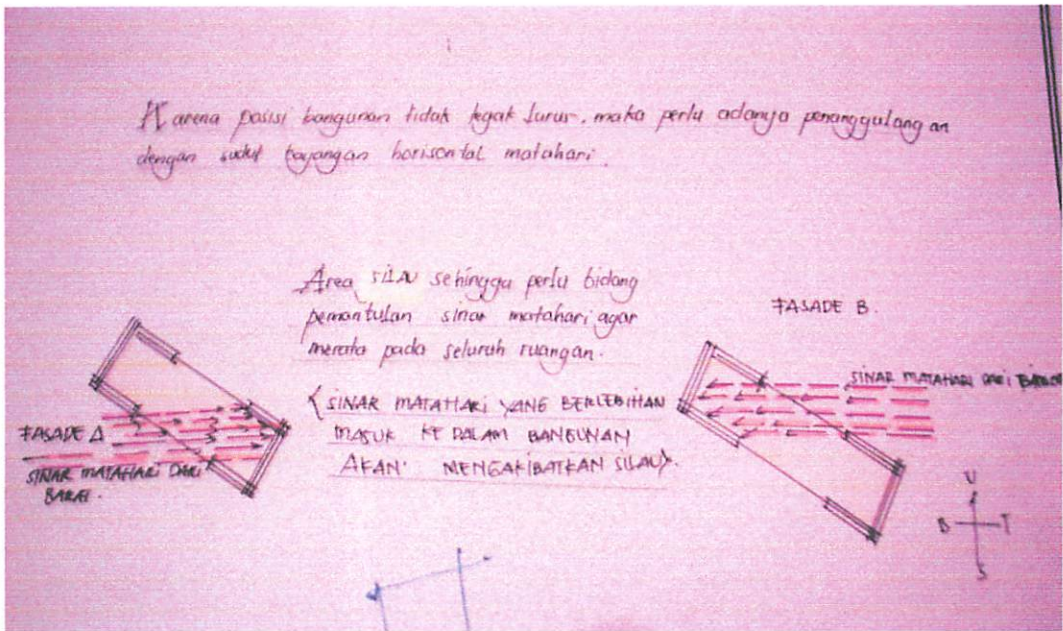 Karena posisi bangunan tidak tegak lurus, maka perlu adanya penanggulangan
dengan sudut bayangan horisontal matahari.
Area SILAU sehingga perlu bidang
pemantulan sinar matahari agar
merata pada seluruh ruangan.
(SINAR MATAHARI YANG BERLEBIHAN
MASUK KE DALAM BANGUNAN
AKAN MENGAKIBATKAN SILAU).
FASADE A
SINAR MATAHARI DARI
BARAT.
FASADE B.
SINAR MATAHARI DARI
U
B
T
S